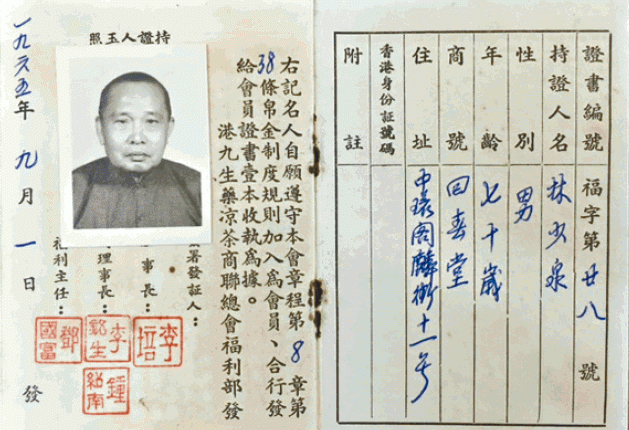 證書編號 福字第廿八號
持證人名 林少泉
性別 男
年齡 七十歲
商號 回春堂
住址 中環閣麟街十一号
香港身份証號碼
附註
持證人玉照
右記名人自願遵守本會章程第8章第
38條帛金制度規則加入為會員、合行發
給會員證書壹本收執為據。
港九生藥凉茶商聯總會福利部發
署發証人：
事長：
理事長：
福利主任：
李培
李銘生
鍾紹南
鄧國富
一九六五年九月一日發